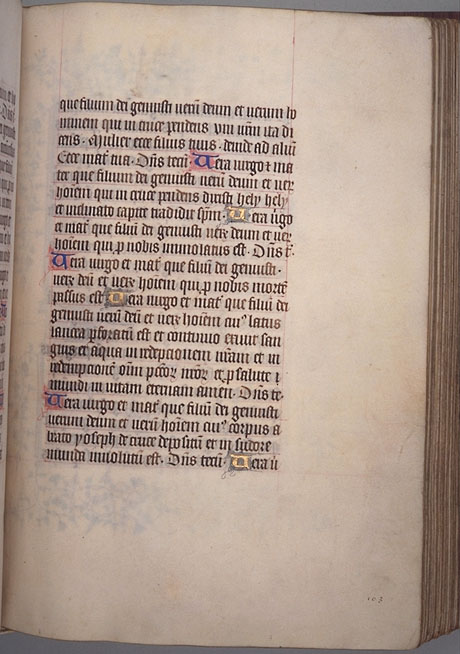 que filium dei genuisti uerū deum et uerum ho
minem qui in cruce pendens vnū
cens · Mulier ecce filius tuus · deinde ad aliū
Ecce mat̄ tua · Dn̄s tecū · Uera uirgo et ma
ter que filium dei genuisti uerū deum et uerū
hoīem qui in cruce pendens dixisti hely hely
et inclinato capite tradidit sp̄m · Uera u̇go
et mat̄ que filiū dei genuisti uerū deum et uerū
hoīem qui ꝓ nobis immolatus est · Dn̄s t̄·
Uera uirgo et mat̄ que filiū dei genuisti ·
uerū deū et uerū hoīem qui ꝓ nobis mortē
passus est Uera uirgo et mat̄ que filiū dei
genuisti uerū deū et uerū hoīem cuiꝰ latus
lancea ꝑforatū est et continuo exiuit san
guis et aqua in redēpcionem nr̄am et in
redempcionē oīm pctōꝝ nr̄oꝝ et ꝓ salute
mundi in uitam eternam amen · Dn̄s te·
Uera uirgo et mat̄ que filiū dei genuisti
uerum deum et uerū hoīem cuiꝰ corpus a
beato yoseph de cruce depositū et in syndone
munda inuolutū est · Dn̄s tecū · Uera ū
103